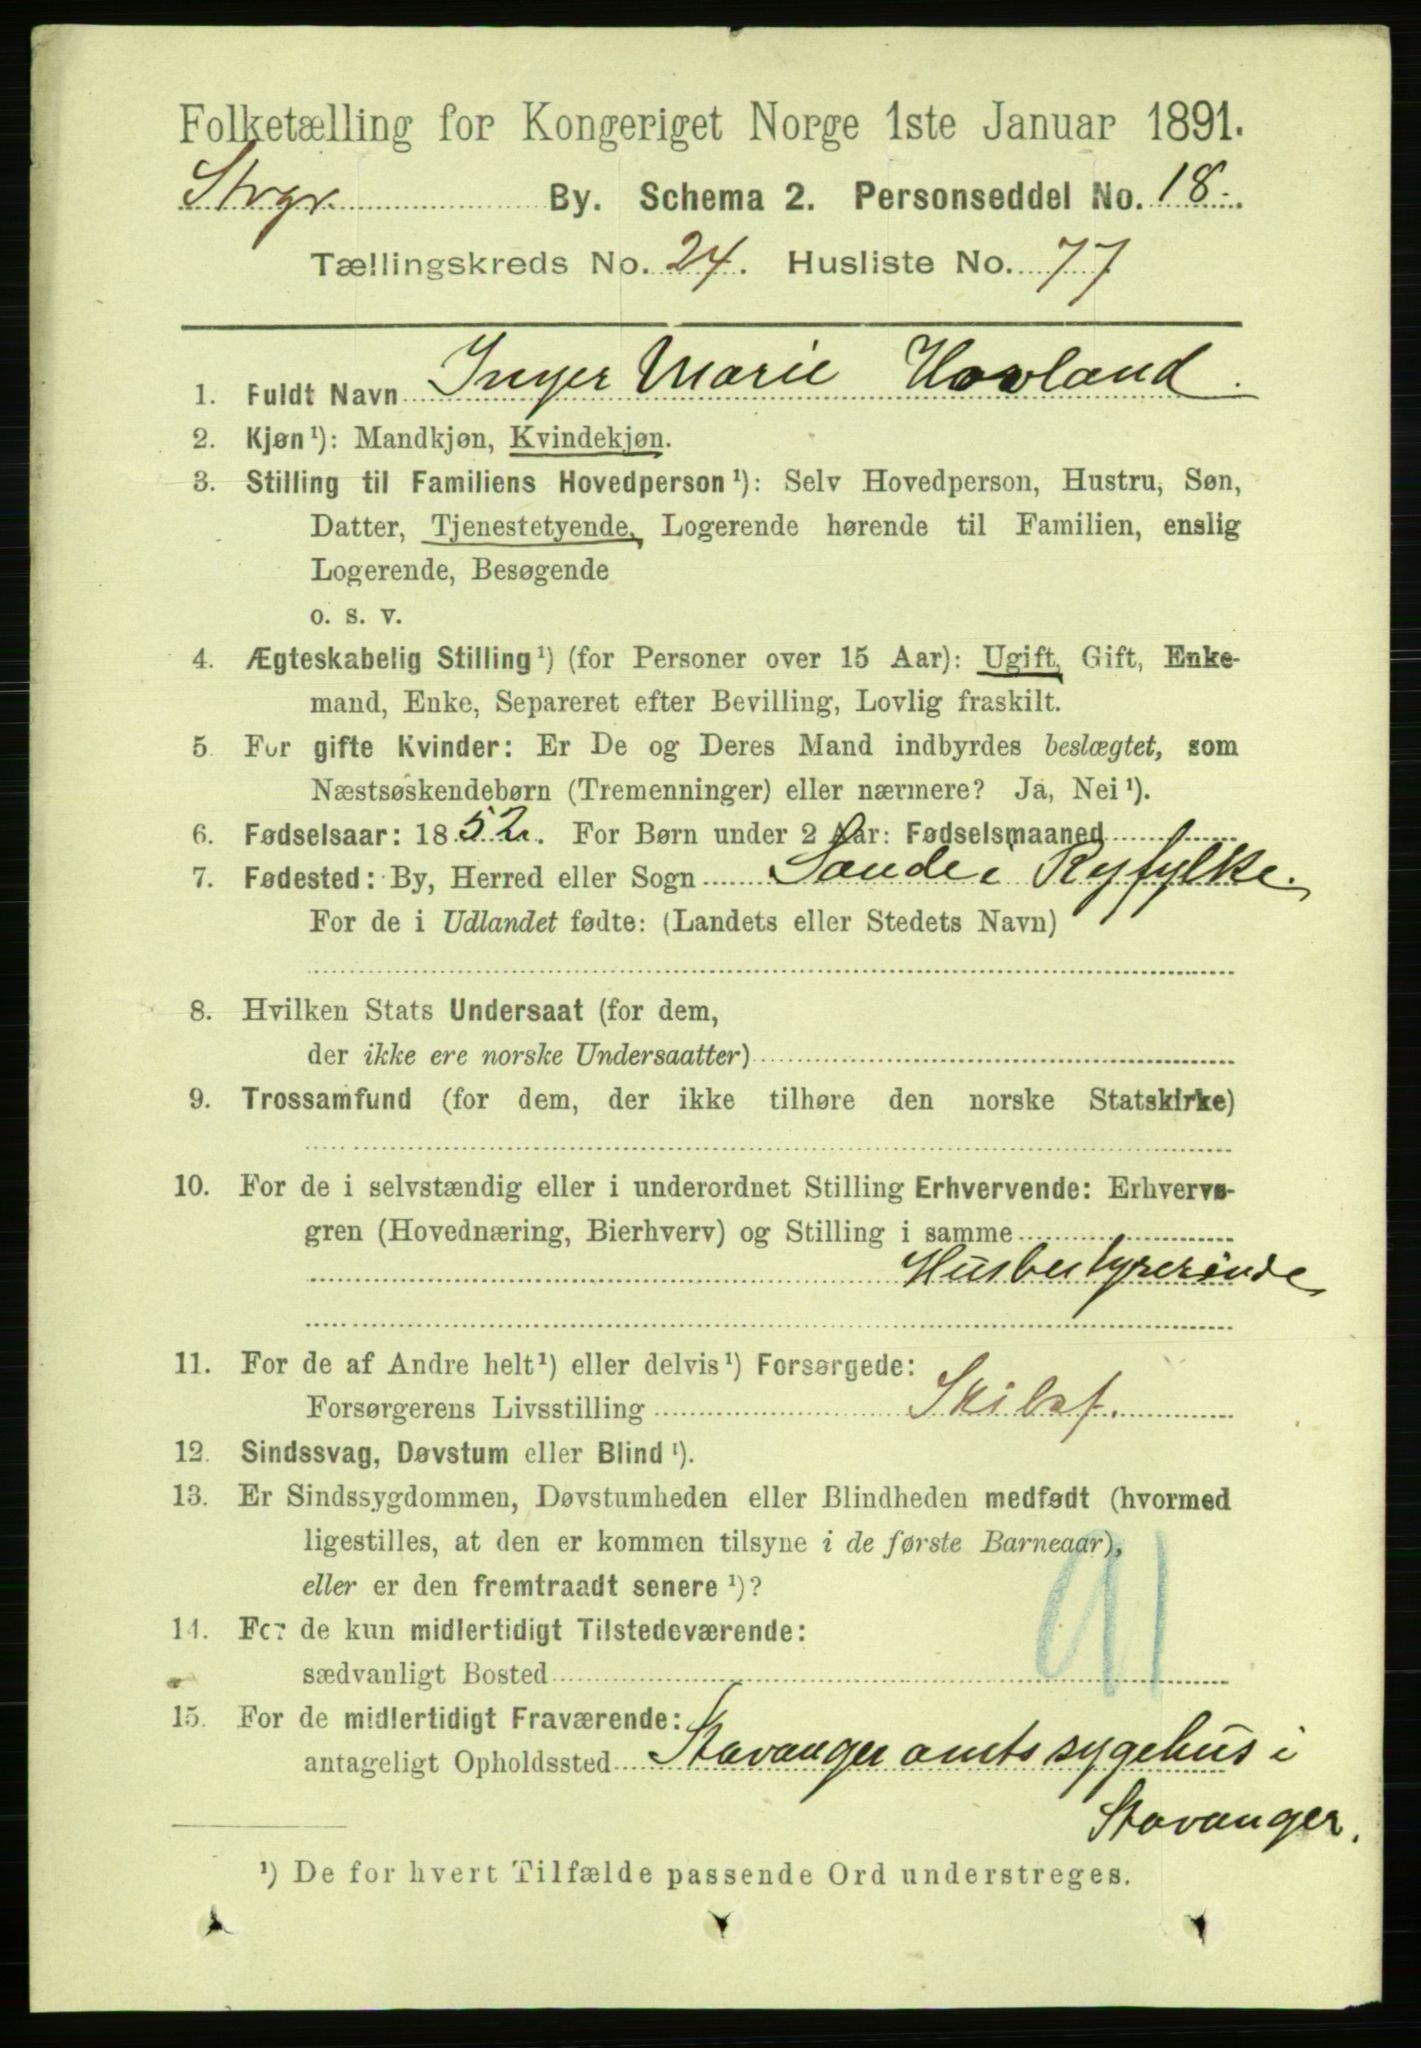 Folketælling for Kongeriget Norge 1ste Januar 1891.
Stvgr. By. Schema 2. Personseddel No. 18.
Tællingskreds No. 24. Husliste No. 77
1. Fuldt Navn Inger Marie Hovland.
2. Kjøn ¹): Mandkjøn, Kvindekjøn.
3. Stilling til Familiens Hovedperson ¹): Selv Hovedperson, Hustru, Søn,
Datter, Tjenestetyende, Logerende hørende til Familien, enslig
Logerende, Besøgende
o. s. v.
4. Ægteskabelig Stilling ¹) (for Personer over 15 Aar): Ugift, Gift, Enke-
mand, Enke, Separeret efter Bevilling, Lovlig fraskilt.
5. For gifte Kvinder: Er De og Deres Mand indbyrdes beslægtet, som
Næstsøskendebørn (Tremenninger) eller nærmere? Ja, Nei ¹).
6. Fødselsaar: 1852. For Børn under 2 Aar: Fødselsmaaned
7. Fødested: By, Herred eller Sogn Sande i Ryfylke.
For de i Udlandet fødte: (Landets eller Stedets Navn)
8. Hvilken Stats Undersaat (for dem,
der ikke ere norske Undersaatter)
9. Trossamfund (for dem, der ikke tilhøre den norske Statskirke)
10. For de i selvstændig eller i underordnet Stilling Erhvervende: Erhvervs-
gren (Hovednæring, Bierhverv) og Stilling i samme
Husbestyrerinde
11. For de af Andre helt ¹) eller delvis ¹) Forsørgede:
Forsørgerens Livsstilling
12. Sindssvag, Døvstum eller Blind ¹).
13. Er Sindssygdommen, Døvstumheden eller Blindheden medfødt (hvormed
ligestilles, at den er kommen tilsyne i de første Barneaar),
eller er den fremtraadt senere ¹)?
91
14. For de kun midlertidigt Tilstedeværende:
sædvanligt Bosted
15. For de midlertidigt Fraværende:
antageligt Opholdssted Stavanger amts sygehus i
Stavanger.
¹) De for hvert Tilfælde passende Ord understreges.